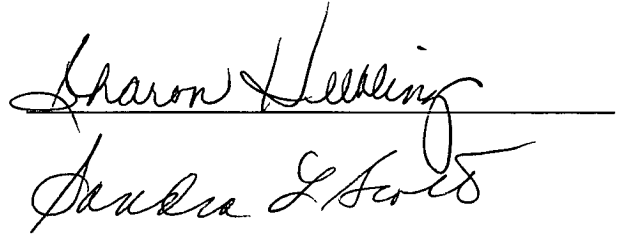 Sharon Helbling
Sandra L Scott